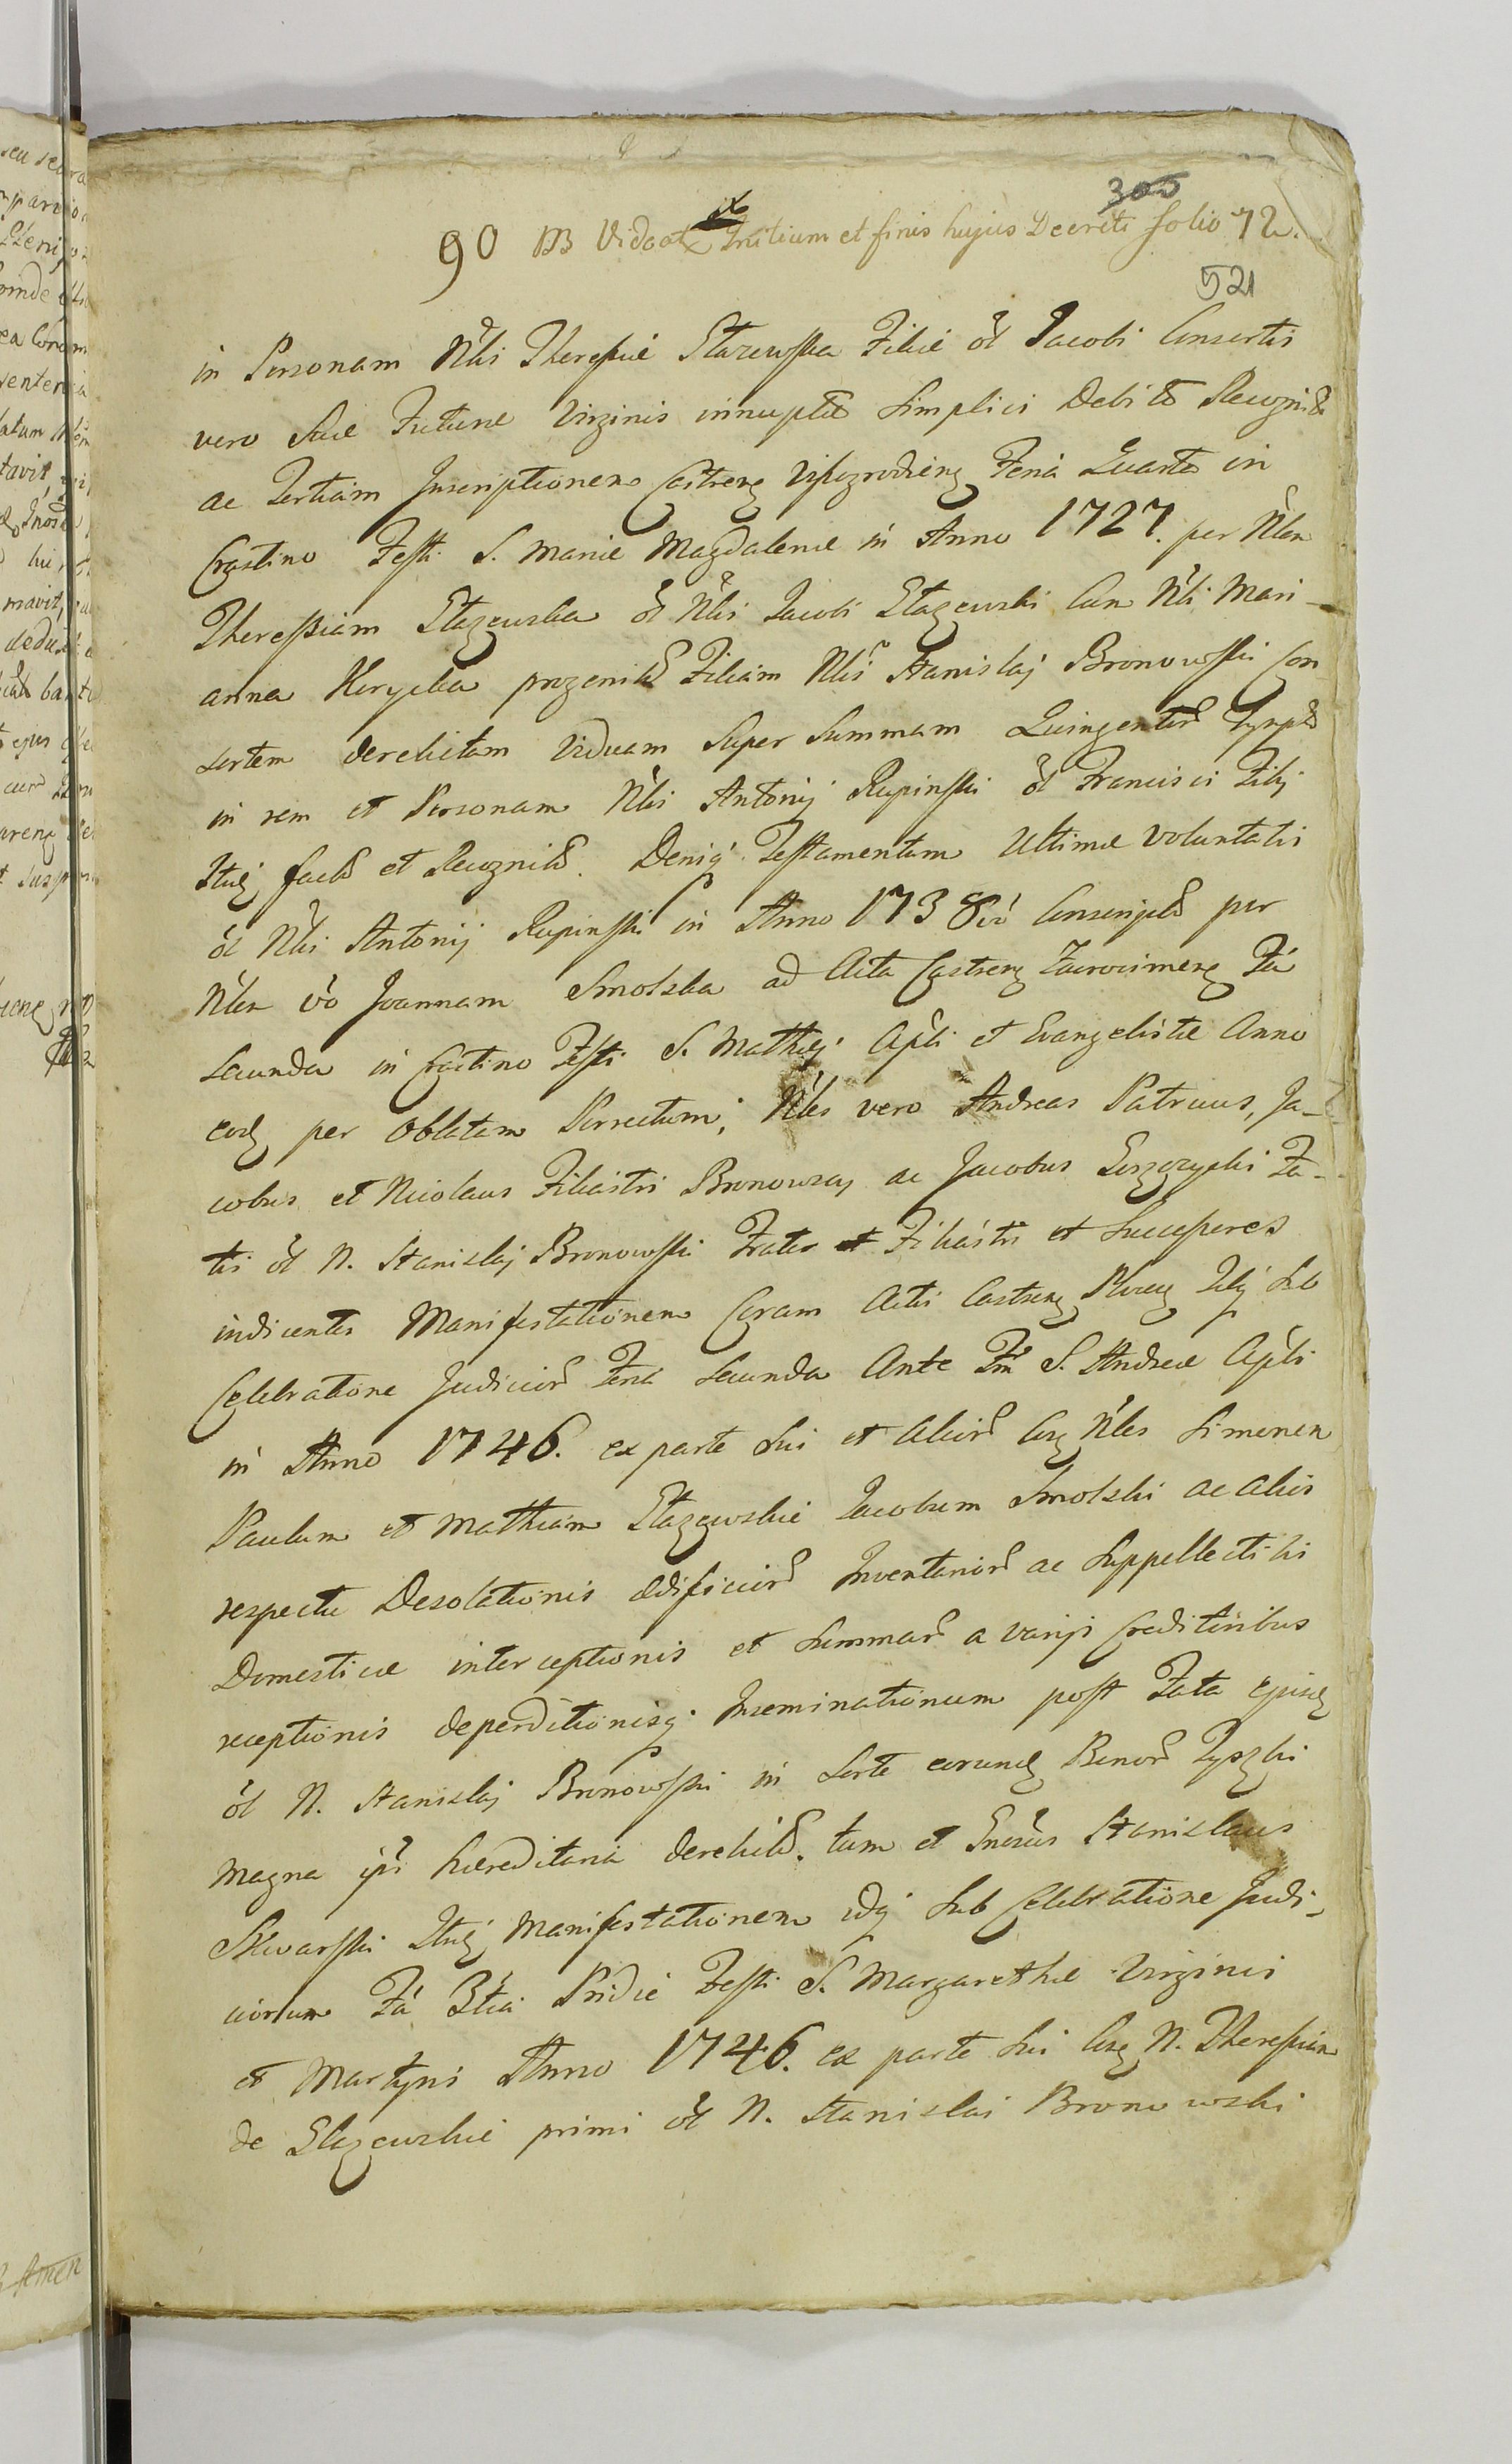 305
90 NB Videat Initium et finis hujus Decreti folio 72.
521
in Personam Nlis Theressiae Elazewska Filiae ol Jacobi Consortis
vero Suae Futurae Virginis innuptae Simplici Debito Recognita
ac Tertiam Inscriptionem Castren Wyszogrodien Feria Quarta in
Crastino Festi S. Mariae Magdalenae in Anno 1727. per Nlem
Theressiam Elazewska ol Nlis Jacobi Elazewski cum Nli Mari-
anna Kerycka progenit Filiam Nlis Stanislaj Bronowski Con
sortem derelictam Viduam Super Summam Quingentor Tynph
in rem et Personam Nlis Antonij Rupinski ol Francisci Filij
Itiq fact et Recognit. Deniq Testamentum Ultimae Voluntatis
ol Nlis Antonij Rupinski in Anno 1738vo Conscript per
Nlem vo Joannam Smolska ad Acta Castren Zacrocimen Fa
Secunda in Crastino Festi S. Mathej Apli et Evangelistae Anno
eod per Oblatam Porrectum; Nles vero Andreas Patruus, Ja-
cobus et Nicolaus Filiastri Bronowscy ac Jacobus Fa-
tis ol N. Stanislaj Bronowski Frater et Filiastri et Successores
indicentes Manifestationem Coram Actis Castren Plocen Sub
Celebratione Judicior Feria Secunda Ante Fm S. Andreae Apli
in Anno 1746. ex parte Sui et Alior Nles Simonem
Paulum et Mathiam Elazewskie Jacobum Smolski ac alios
respectu Desolationis aedificior Inventarior ac Suppellectilis
Domesticae interceptionis et Summar a varijs Creditoribus
receptionis deperditionisq Inseminationum post Fata Ejusd
ol N. Stanislaj Bronowski in Sorte eorund Bonor Tyszki
Magna ipsi haereditaria derelict. tum et Gnosus Stanislaus
Skwarski Itiq Manifestationem idq Sub Celebratione Judi-
ciorum Fa 3tia Pridie Festi S. Margarethae Virginis
et Martyris Anno 1746. ex parte Sui N. Theressiam
de Elazewskie primi ol N. Stanislai Bronowski